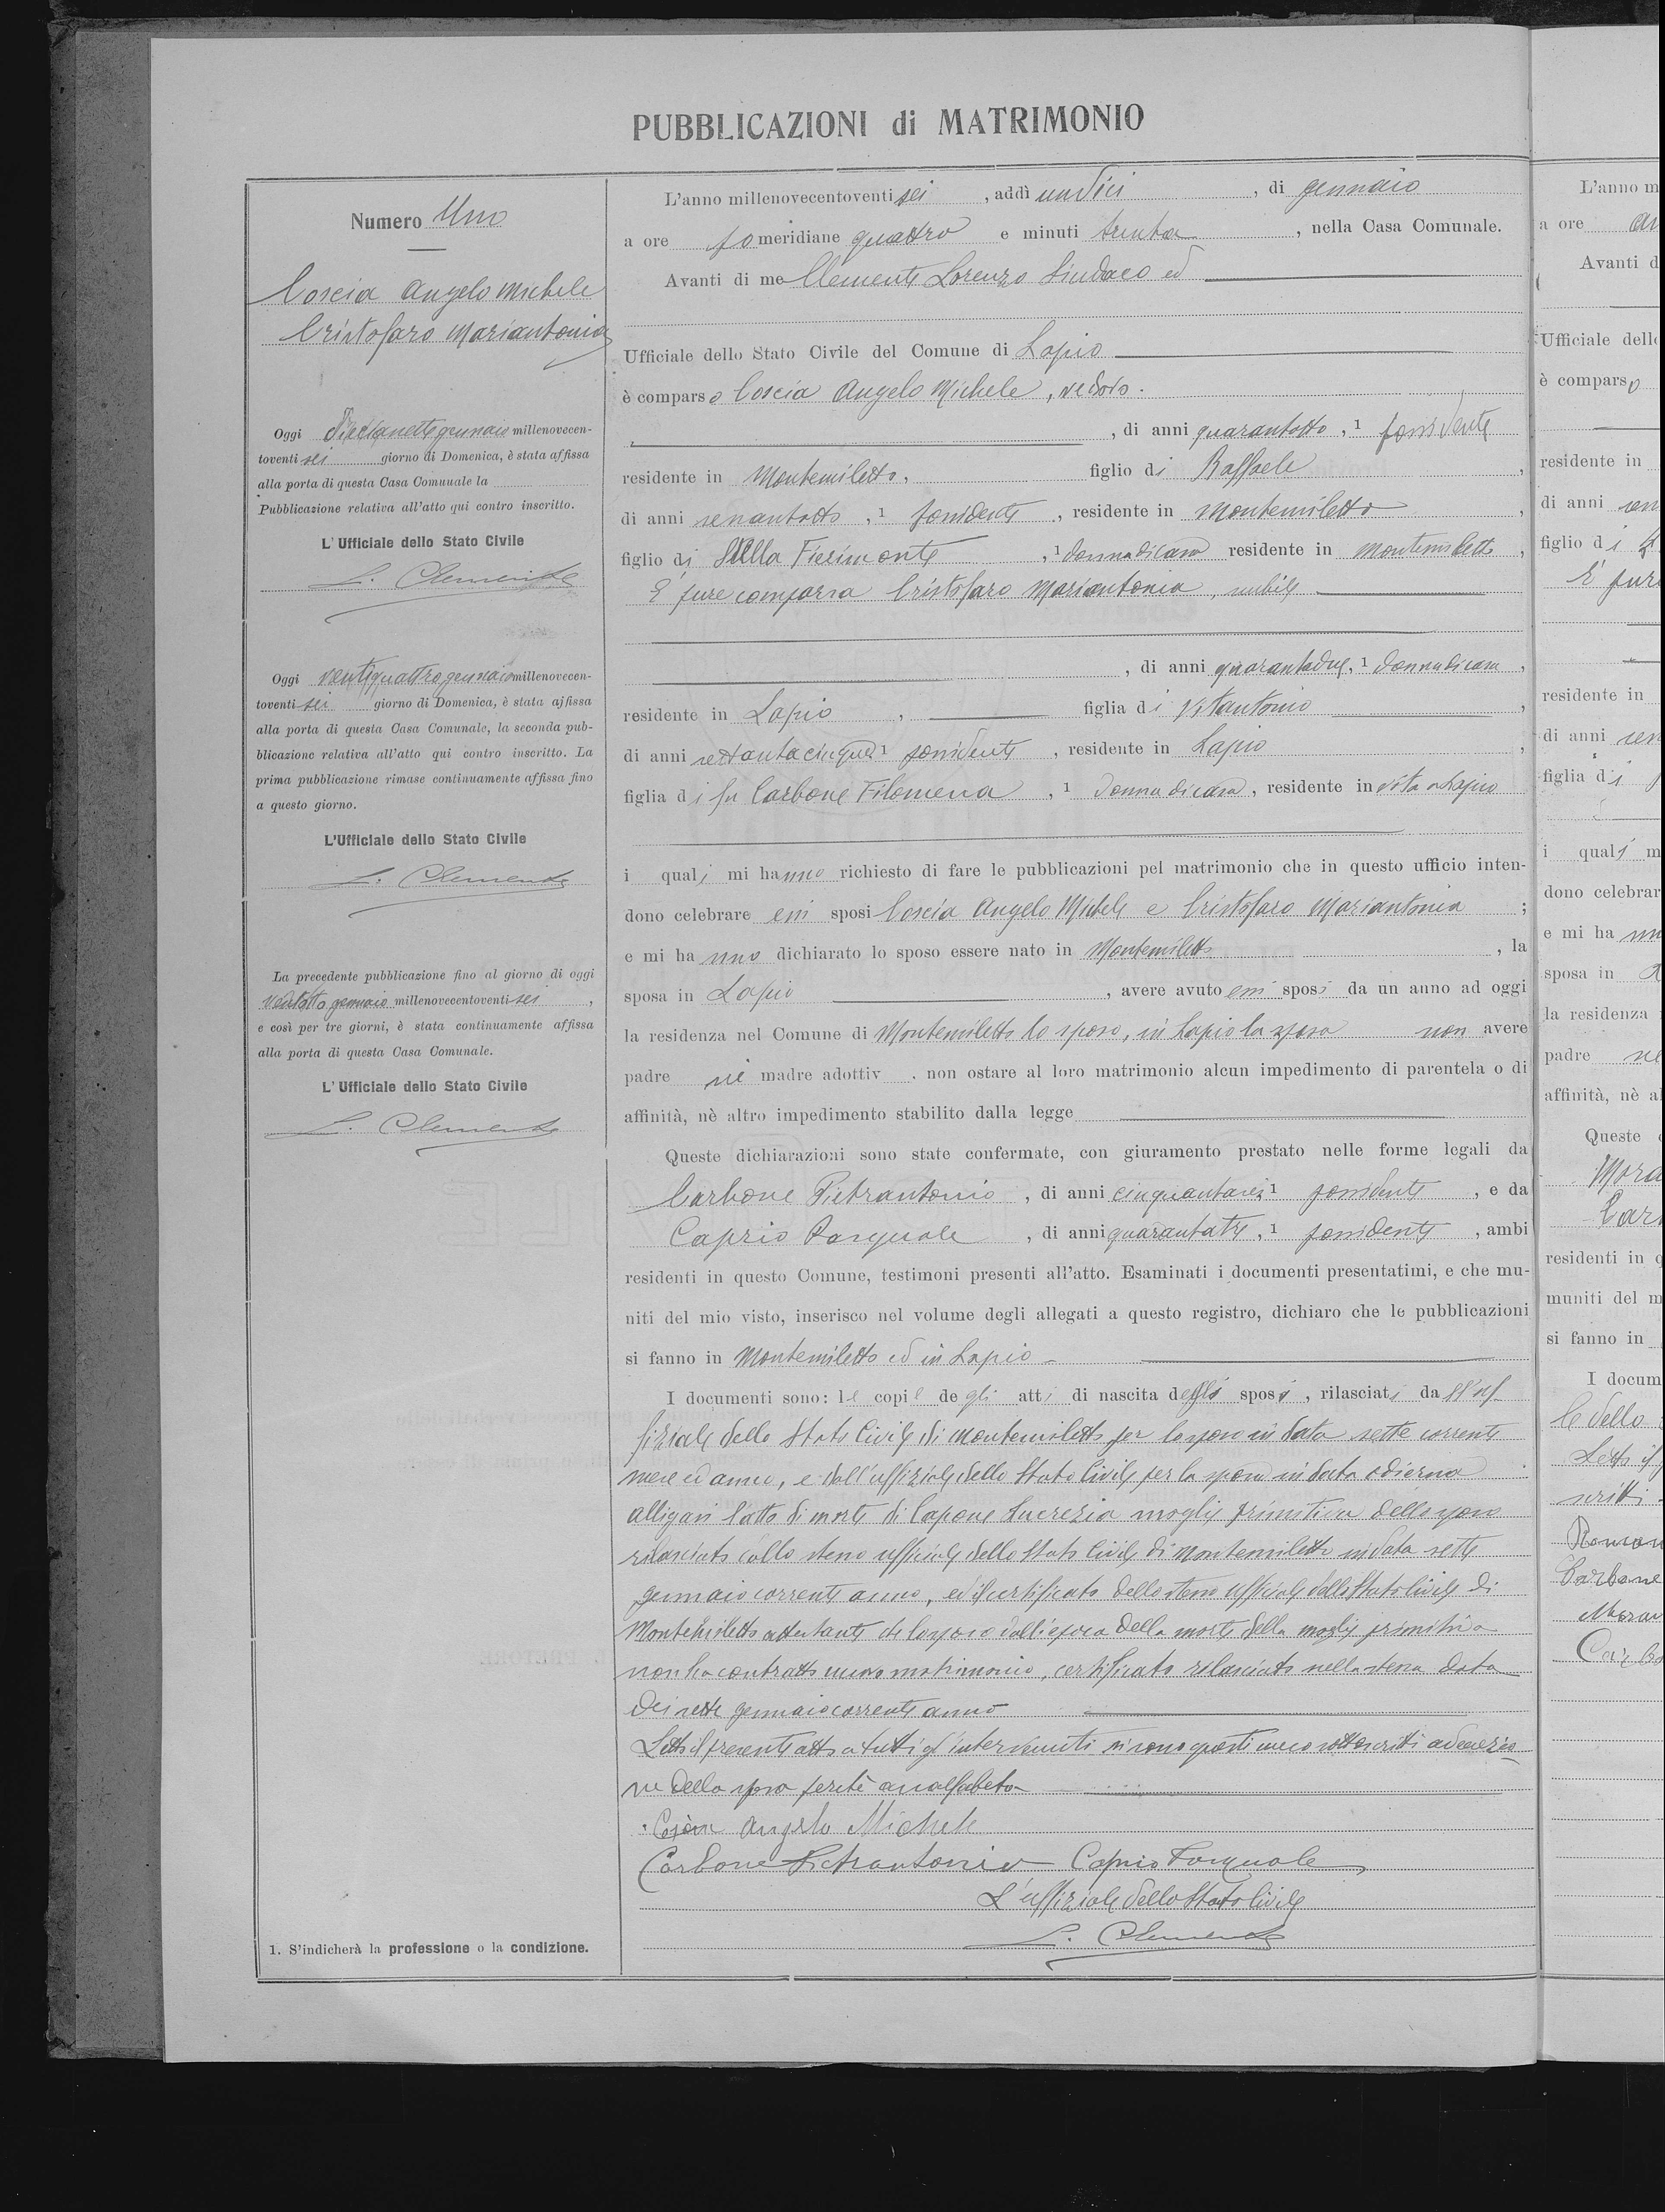 PUBBLICAZIONI di MATRIMONIO
Numero Uno
Coscia Angelo Michele
Cristofaro Mariantonia
Oggi diciassette gennaio millenovecen-
toventi sei giorno di Domenica, è stata affissa
alla porta di questa Casa Comunale la
Pubblicazione relativa all'atto qui contro inscritto.
L'Ufficiale dello Stato Civile
L. Clemente
Oggi ventiquattro gennaio millenovecen-
toventi sei giorno di Domenica, è stata affissa
alla porta di questa Casa Comunale, la seconda pub-
blicazione relativa all'atto qui contro inscritto. La
prima pubblicazione rimase continuamente affissa fino
a questo giorno.
L'Ufficiale dello Stato Civile
L. Clemente
La precedente pubblicazione fino al giorno di oggi
ventotto gennaio millenovecentoventi sei,
e così per tre giorni, è stata continuamente affissa
alla porta di questa Casa Comunale.
L'Ufficiale dello Stato Civile
L. Clemente
1. S'indicherà la professione o la condizione.
L'anno millenovecentoventi sei, addì undici, di gennaio
a ore pomeridiane quattro e minuti trenta, nella Casa Comunale.
Avanti di me Clemente Lorenzo Sindaco ed
Ufficiale dello Stato Civile del Comune di Lapio
è comparso Coscia Angelo Michele, vedovo.
, di anni quarantotto, 1 possidente
residente in Montemiletto, figlio di Raffaele,
di anni settantotto, 1 possidente, residente in Montemiletto,
figlio di Stella Fierimonte, 1 donna di casa residente in Montemiletto,
È pure comparsa Cristofaro Mariantonia, nubile
, di anni quarantadue, 1 donna di casa,
residente in Lapio, figlia di Vitantonio,
di anni settantacinque, 1 possidente, residente in Lapio,
figlia di fu Carbone Filomena, 1 donna di casa, residente in vita a Lapio
i quali mi hanno richiesto di fare le pubblicazioni pel matrimonio che in questo ufficio inten-
dono celebrare essi sposi Coscia Angelo Michele e Cristofaro Mariantonia;
e mi ha nno dichiarato lo sposo essere nato in Montemiletto, la
sposa in Lapio, avere avuto essi sposi da un anno ad oggi
la residenza nel Comune di Montemiletto lo sposo, in Lapio la sposa non avere
padre nè madre adottiv . non ostare al loro matrimonio alcun impedimento di parentela o di
affinità, nè altro impedimento stabilito dalla legge
Queste dichiarazioni sono state confermate, con giuramento prestato nelle forme legali da
Carbone Pietrantonio, di anni cinquantasei, 1 possidente, e da
Caprio Pasquale, di anni quarantatre, 1 possidente, ambi
residenti in questo Comune, testimoni presenti all'atto. Esaminati i documenti presentatimi, e che mu-
niti del mio visto, inserisco nel volume degli allegati a questo registro, dichiaro che le pubblicazioni
si fanno in Montemiletto ed in Lapio
I documenti sono: le copie degli atti di nascita degli sposi, rilasciati dall'uf
fiziale dello Stato Civile di Montemiletto per lo sposo in data sette corrente
mese ed anno, e dall'uffiziale dello Stato Civile per la sposa in data odierna
alligasi l'atto di morte di Capone Lucrezia moglie primitiva dello sposo
rilasciato dallo stesso ufficiale dello Stato Civile di Montemiletto in data sette
gennaio corrente anno, ed il certificato dello stesso ufficiale dello Stato Civile di
Montemiletto attestante che lo sposo dall'epoca della morte della moglie primitiva
non ha contratto nuovo matrimonio, certificato rilasciato nella stessa data
dei sette gennaio corrente anno
Letto il presente atto a tutti gl'intervenuti si sono questi meco sottoscritti ad eccezio
ne della sposa perchè analfabeta
Coscia Angelo Michele
Carbone Pietrantonio Caprio Pasquale
L'uffiziale dello Stato Civile
L. Clemente
L'anno m
a ore
Avanti d
Ufficiale dello
è comparso
residente in
di anni
figlio di
È pure
residente in
di anni
figlia di
i quali m
dono celebrar
e mi ha nn
sposa in
la residenza
padre
affinità, nè al
Queste
residenti in q
muniti del m
si fanno in
I docum
le dello
Carbone